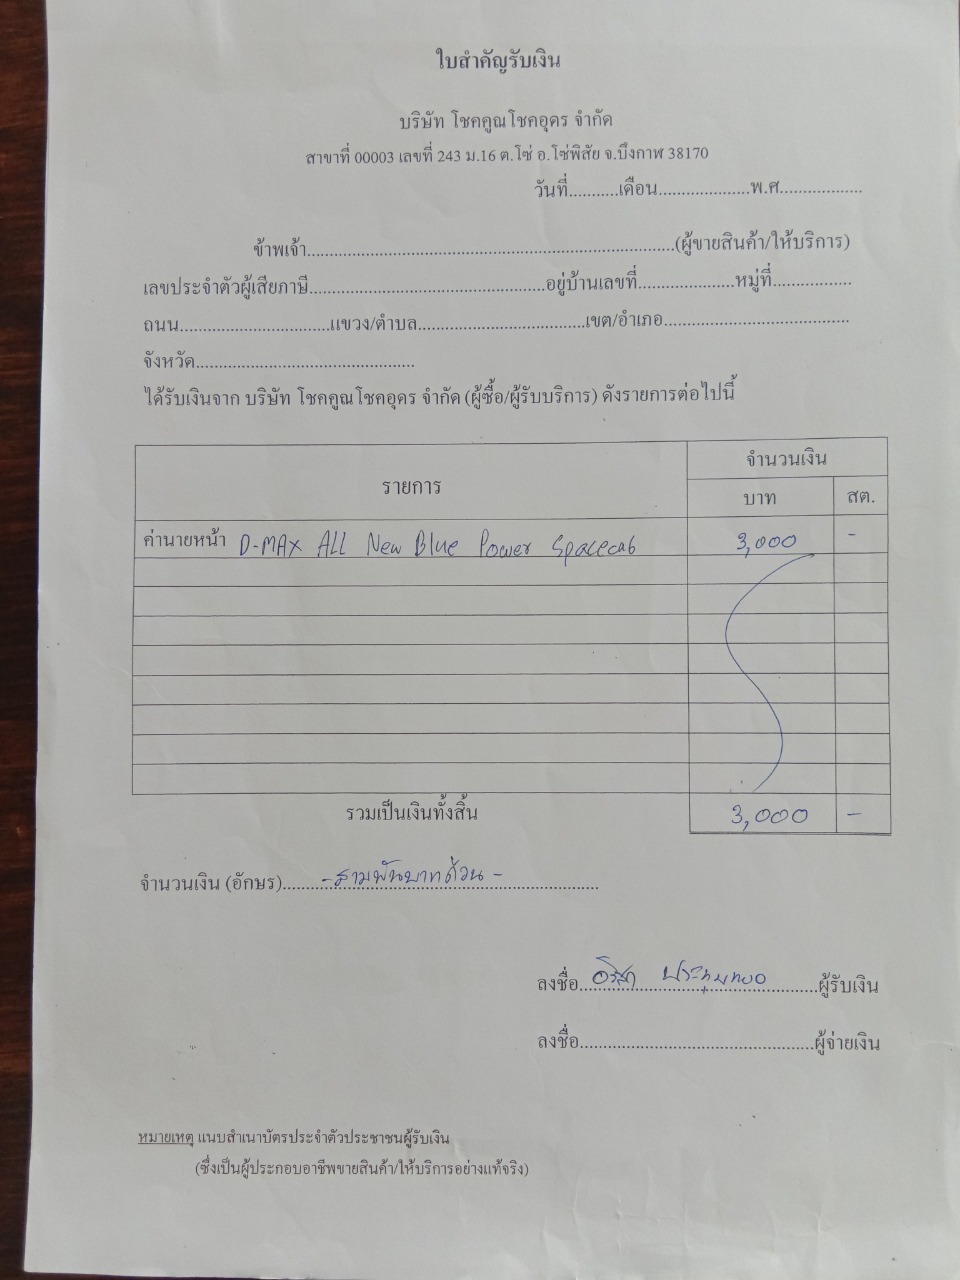 ใบสำคัญรับเงิน
บริษัท โชคคูณโชคอุดร จำกัด
สาขาที่ 00003 เลขที่ 243 ม.16 ต.โซ่ อ.โซ่พิสัย จ.บึงกาฬ 38170
วันที่...........เดือน....................พ.ศ..................
ข้าพเจ้า................................................................................(ผู้ขายสินค้า/ให้บริการ)
เลขประจำตัวผู้เสียภาษี...................................................อยู่บ้านเลขที่.....................หมู่ที่.................
ถนน.................................แขวง/ตำบล....................................เขต/อำเภอ........................................
จังหวัด...............................................
ได้รับเงินจาก บริษัท โชคคูณโชคอุดร จำกัด (ผู้ซื้อ/ผู้รับบริการ) ดังรายการต่อไปนี้
รายการ จำนวนเงิน
บาท สต.
ค่านายหน้า D-MAX ALL New Blue Power Spacecab 3,000 -
รวมเป็นเงินทั้งสิ้น 3,000 -
จำนวนเงิน (อักษร)........-สามพันบาทถ้วน-....................
ลงชื่อ....................ผู้รับเงิน
ลงชื่อ..................................................ผู้จ่ายเงิน
หมายเหตุ แนบสำเนาบัตรประจำตัวประชาชนผู้รับเงิน
(ซึ่งเป็นผู้ประกอบอาชีพขายสินค้า/ให้บริการอย่างแท้จริง)